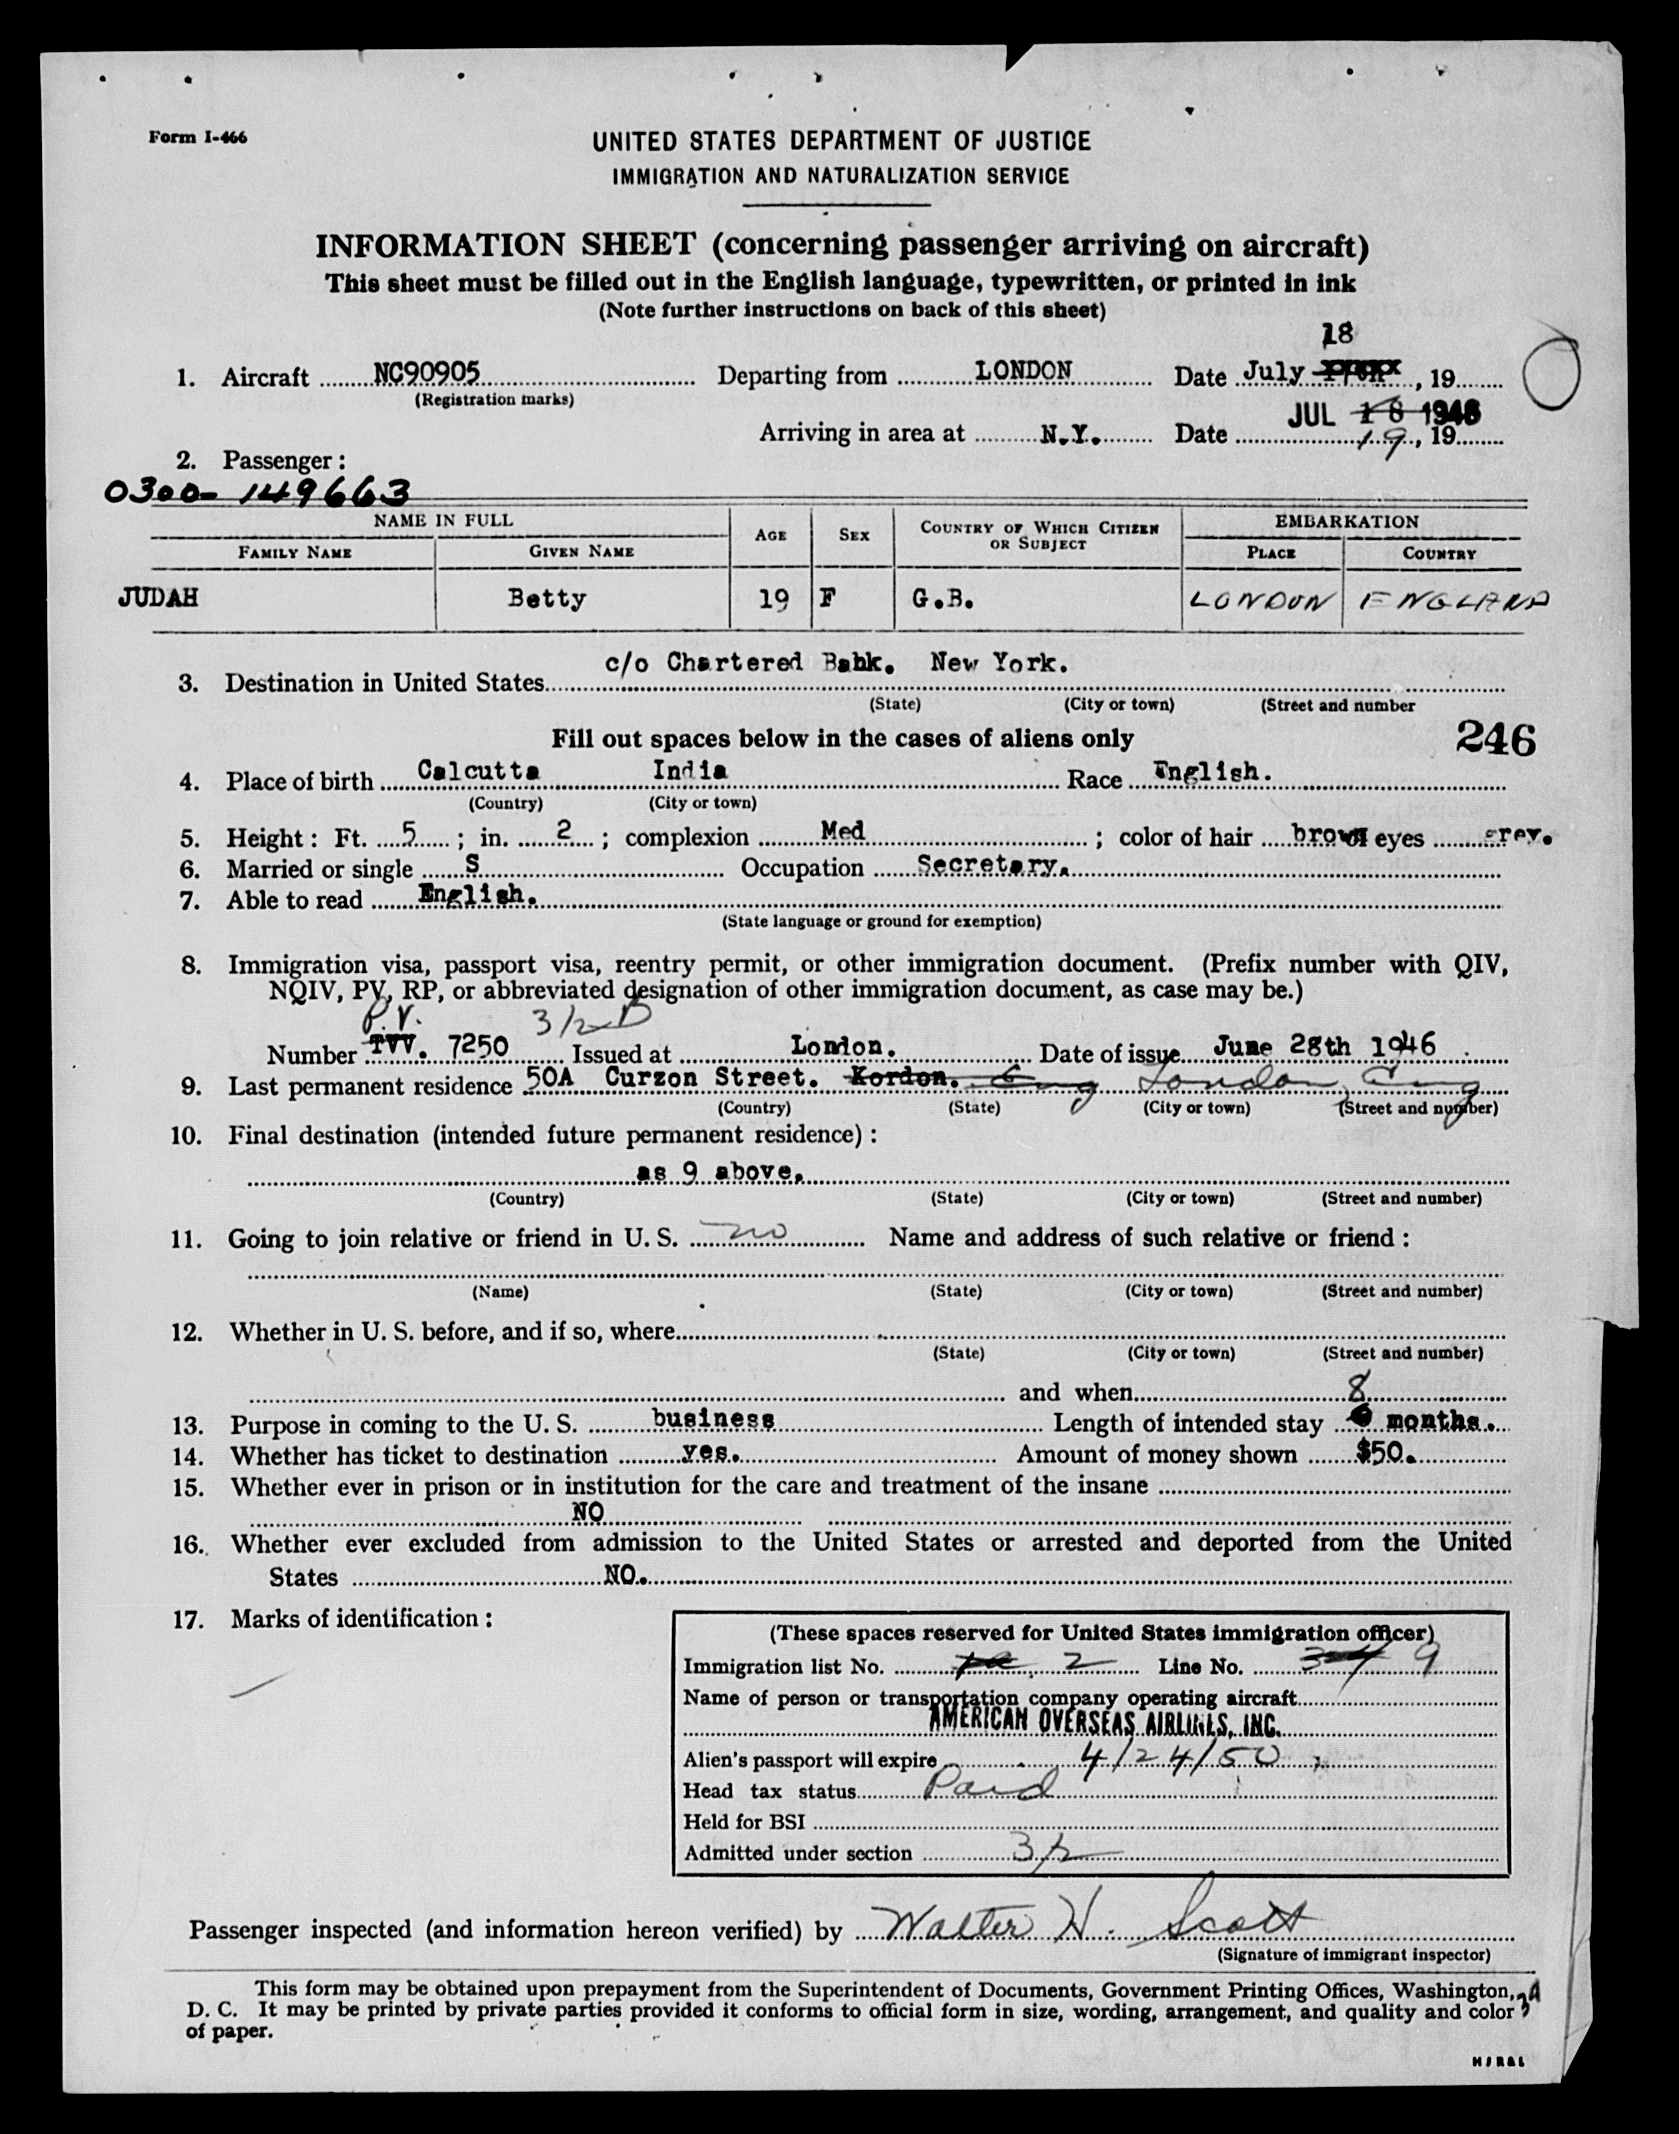 Form I-466
UNITED STATES DEPARTMENT OF JUSTICE
IMMIGRATION AND NATURALIZATION SERVICE
INFORMATION SHEET (concerning passenger arriving on aircraft)
This sheet must be filled out in the English language, typewritten, or printed in ink
(Note further instructions on back of this sheet)
18
1. Aircraft NC90905 Departing from LONDON Date July , 19
(Registration marks)
JUL 18 1946
Arriving in area at N.Y. Date 19, 19
2. Passenger:
0300-149663
NAME IN FULL AGE SEX COUNTRY OF WHICH CITIZEN OR SUBJECT EMBARKATION
FAMILY NAME GIVEN NAME PLACE COUNTRY
JUDAH Betty 19 F G.B. LONDON ENGLAND
c/o Chartered Bahk. New York.
3. Destination in United States
(State) (City or town) (Street and number
Fill out spaces below in the cases of aliens only 246
4. Place of birth Calcutta India Race English.
(Country) (City or town)
5. Height: Ft. 5 ; in. 2 ; complexion Med ; color of hair brown eyes grey.
6. Married or single S Occupation Secretary.
7. Able to read English.
(State language or ground for exemption)
8. Immigration visa, passport visa, reentry permit, or other immigration document. (Prefix number with QIV,
NQIV, PV, RP, or abbreviated designation of other immigration document, as case may be.)
P.V. 3/2 B
Number TVV. 7250 Issued at London. Date of issue June 28th 1946
9. Last permanent residence 50A Curzon Street. Kordon. Eng London, Eng
(Country) (State) (City or town) (Street and number)
10. Final destination (intended future permanent residence):
as 9 above.
(Country) (State) (City or town) (Street and number)
11. Going to join relative or friend in U. S. no Name and address of such relative or friend:
(Name) (State) (City or town) (Street and number)
12. Whether in U. S. before, and if so, where
(State) (City or town) (Street and number)
and when
8
13. Purpose in coming to the U. S. business Length of intended stay months.
14. Whether has ticket to destination yes. Amount of money shown $50.
15. Whether ever in prison or in institution for the care and treatment of the insane
NO
16. Whether ever excluded from admission to the United States or arrested and deported from the United
States NO.
17. Marks of identification:
(These spaces reserved for United States immigration officer)
Immigration list No. 2 Line No. 9
Name of person or transportation company operating aircraft
AMERICAN OVERSEAS AIRLINES, INC.
Alien's passport will expire 4/24/50
Head tax status Paid
Held for BSI
Admitted under section 3/2
Passenger inspected (and information hereon verified) by Walter H. Scott
(Signature of immigrant inspector)
This form may be obtained upon prepayment from the Superintendent of Documents, Government Printing Offices, Washington,
D. C. It may be printed by private parties provided it conforms to official form in size, wording, arrangement, and quality and color
of paper.